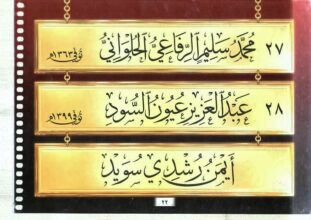 ٢٧ مُحَمَّد سَلِيم الرِّفَاعِيُّ الحُلْوَانِيُّ تُوُفِّيَ ١٣٦٣هـ
٢٨ عَبْدُ العَزِيزِ عُيُونُ السُّودِ تُوُفِّيَ ١٣٩٩هـ
أَيْمَن رُشْدِي سُوَيْد
٢٢